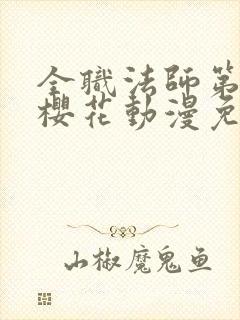 全職法師第
櫻花動漫免
山椒魔鬼鱼